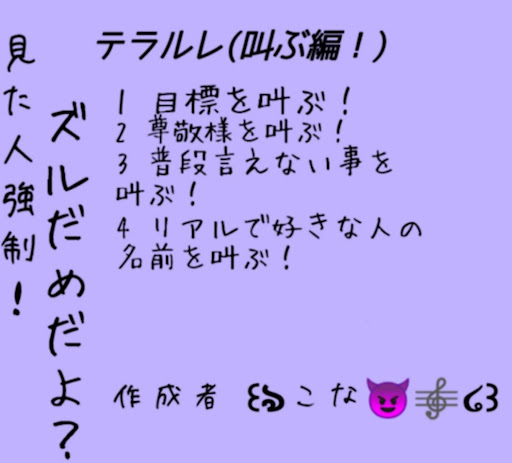 見た人強制！
ズルだめだよ？
テラルレ(叫ぶ編！)
1 目標を叫ぶ！
2 尊敬様を叫ぶ！
3 普段言えない事を
叫ぶ！
4 リアルで好きな人の
名前を叫ぶ！
作成者 ꒰ঌこな😈🎼໒꒱